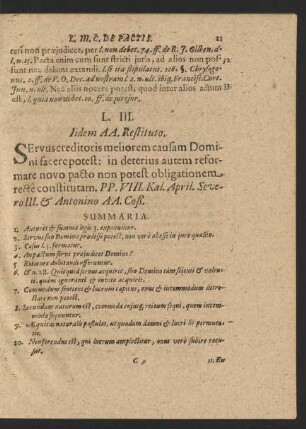 L. M. C. DE PACTIS. 21
teri non præjudicet, per l. non debet. 74. ff. de R. J. Gilken. d.
l. n. 15. Pacta enim cum sunt stricti juris, ad alios non pos-
sunt nec debent extendi. l. si ita stipulatus. 126. §. Chrysogo-
nus. 2. ff. de V. O. Dec. ad nostram l. 2. n. ult. ibiq; Francisc. Curt.
Jun. n. ult. Nec aliis nocere potest, quod inter alios actum
est, l. quia non debet. 10. ff. de jurejur.
L. III.
Iidem AA. Restituto.
Servus creditoris meliorem causam Domi-
ni facere potest: in deterius autem refor-
mare novo pacto non potest obligationem
rectè constitutam. PP. VIII. Kal. April. Seve-
ro III. & Antonino AA. Coss.
SUMMARIA.
1. Autorit & summa legis 3. exponuntur.
2. Servus suo Domino prodesse potest, non verò obesse in jure quæsito.
3. Casus l. 3. formatur.
4. An pactum servi præjudicet Domino?
5. Rationes dubitandi afferuntur.
6. & n. 28. Quicquid servus acquirit, suo Domino tam scienti & volen-
ti, quàm ignoranti & invito acquirit.
7. Commodum sentiens & lucrum capiens, onus & incommodum detre-
ctare non potest.
8. Secundum naturam est, commoda cujusq; rei eum sequi, quem incom-
moda sequuntur.
9. Æquitas naturalis postulat, ut quædam damni & lucri sit permuta-
tio.
10. Non ferendus est, qui lucrum amplectitur, onus verò subire recu-
sat.
C 3 11. Ex